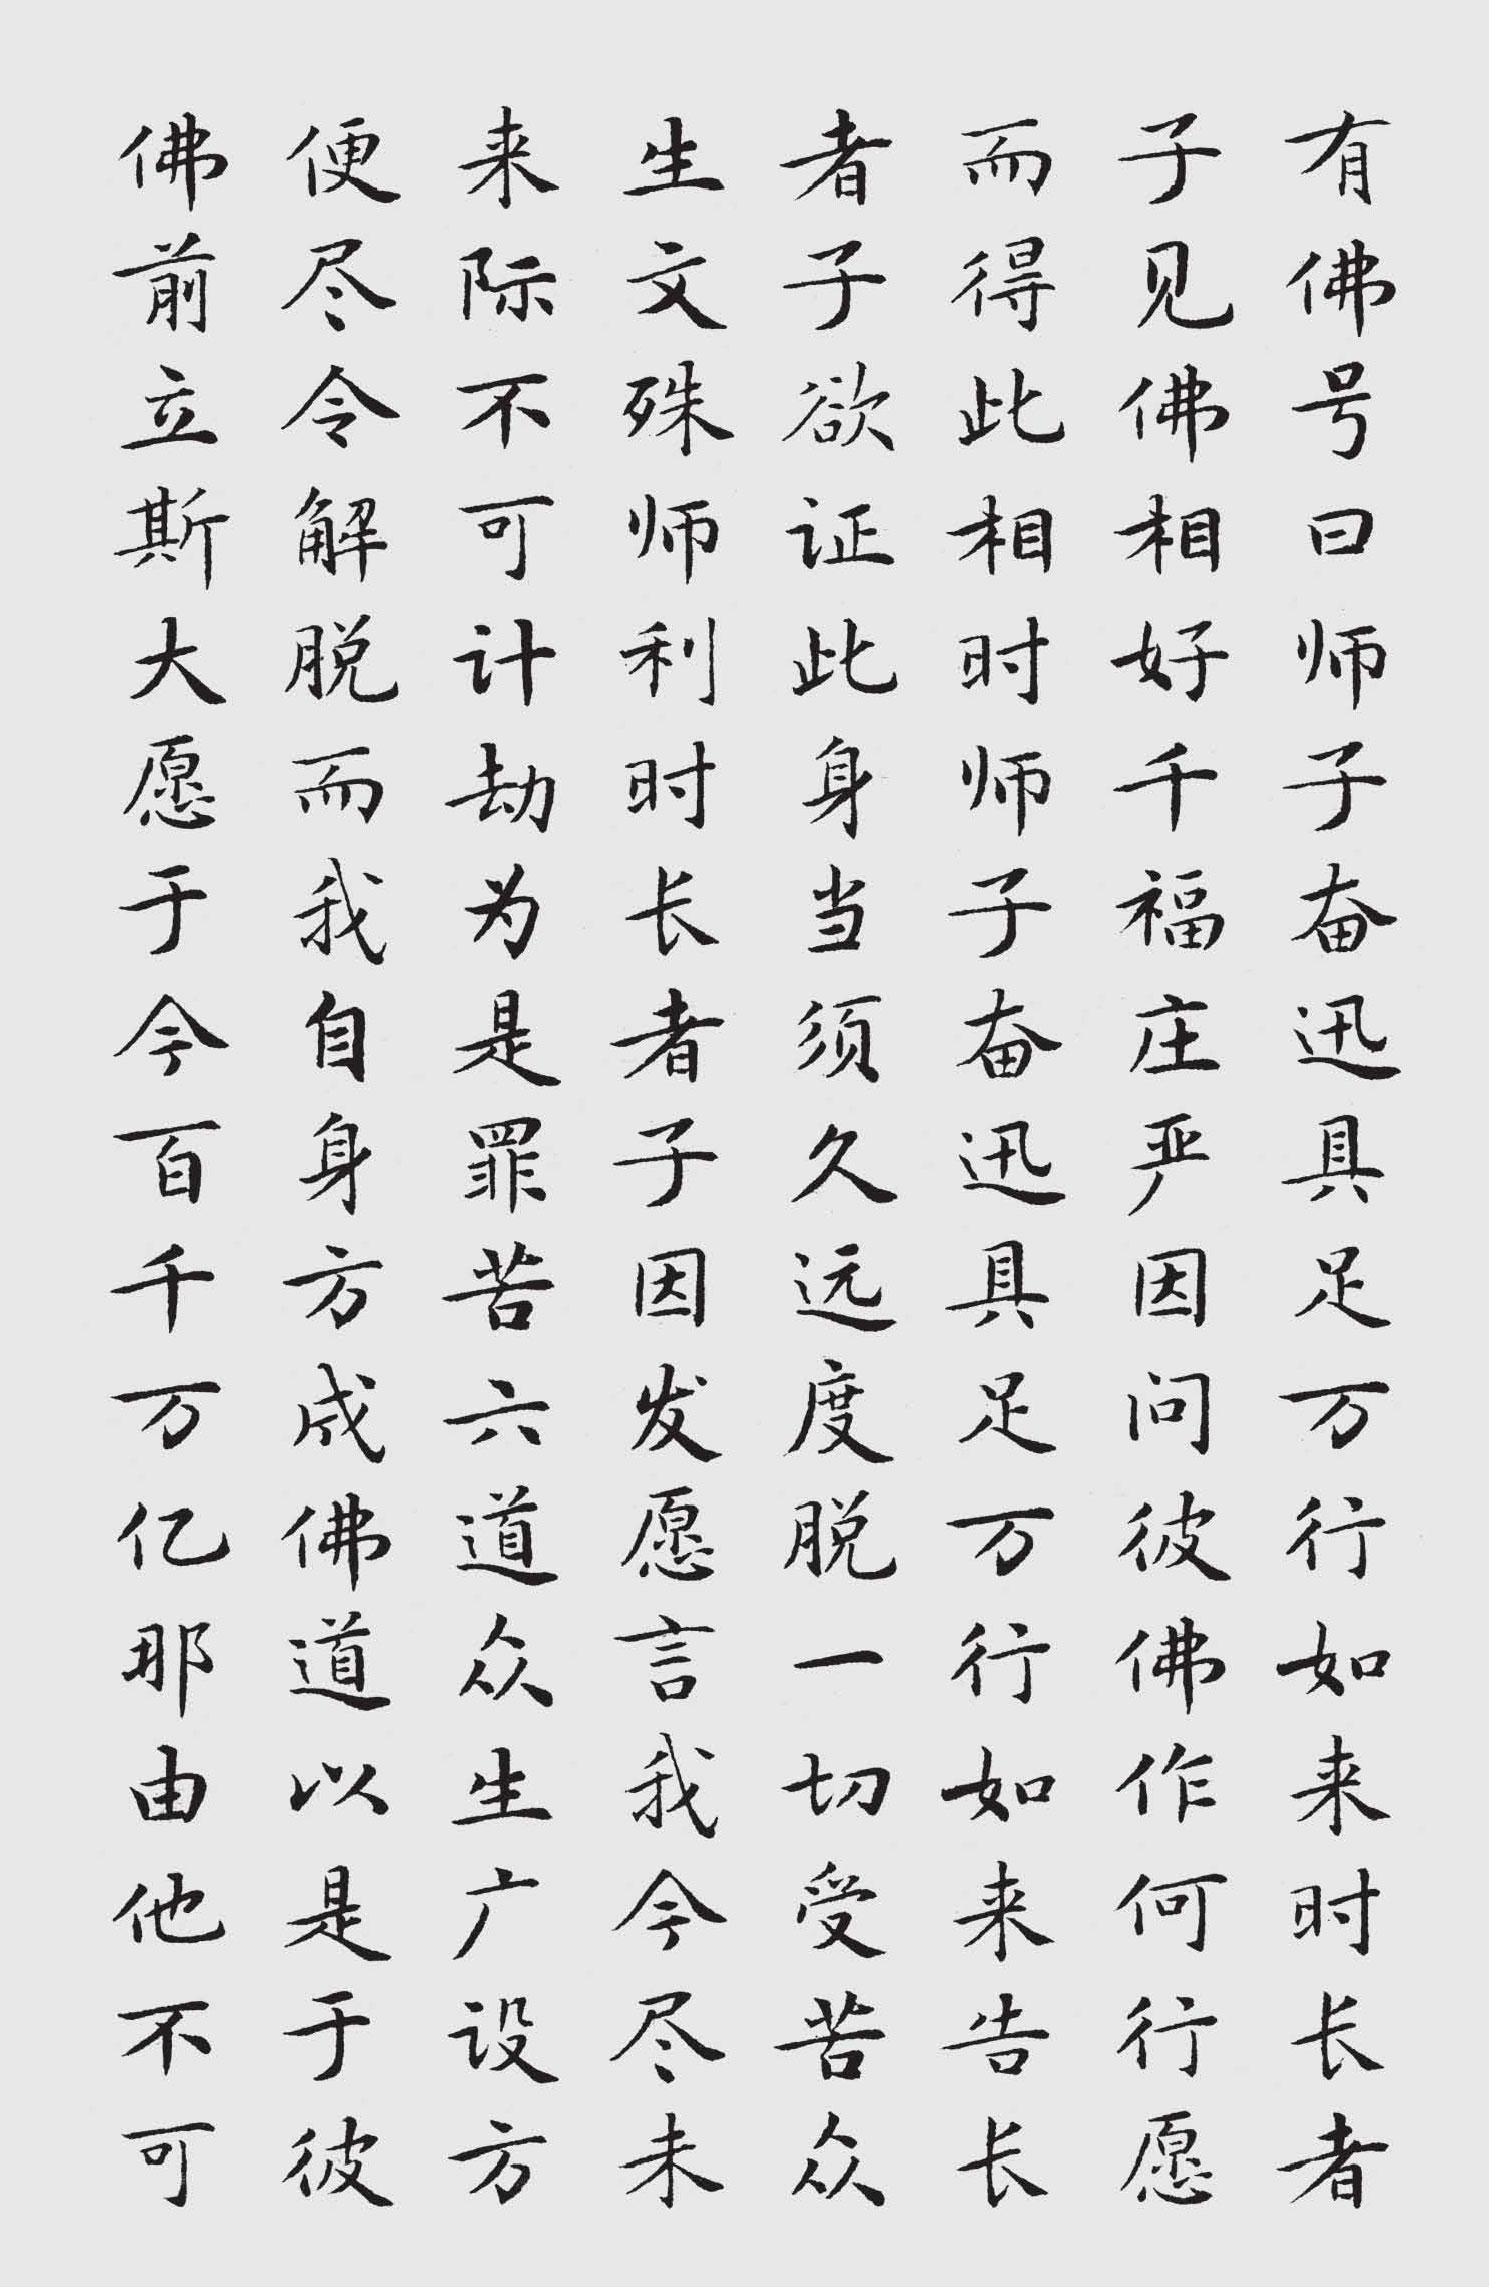 有佛号曰师子奋迅具足万行如来时长者
子见佛相好千福庄严因问彼佛作何行愿
而得此相时师子奋迅具足万行如来告长
者子欲证此身当须久远度脱一切受苦众
生文殊师利时长者子因发愿言我今尽未
来际不可计劫为是罪苦六道众生广设方
便尽令解脱而我自身方成佛道以是于彼
佛前立斯大愿于今百千万亿那由他不可